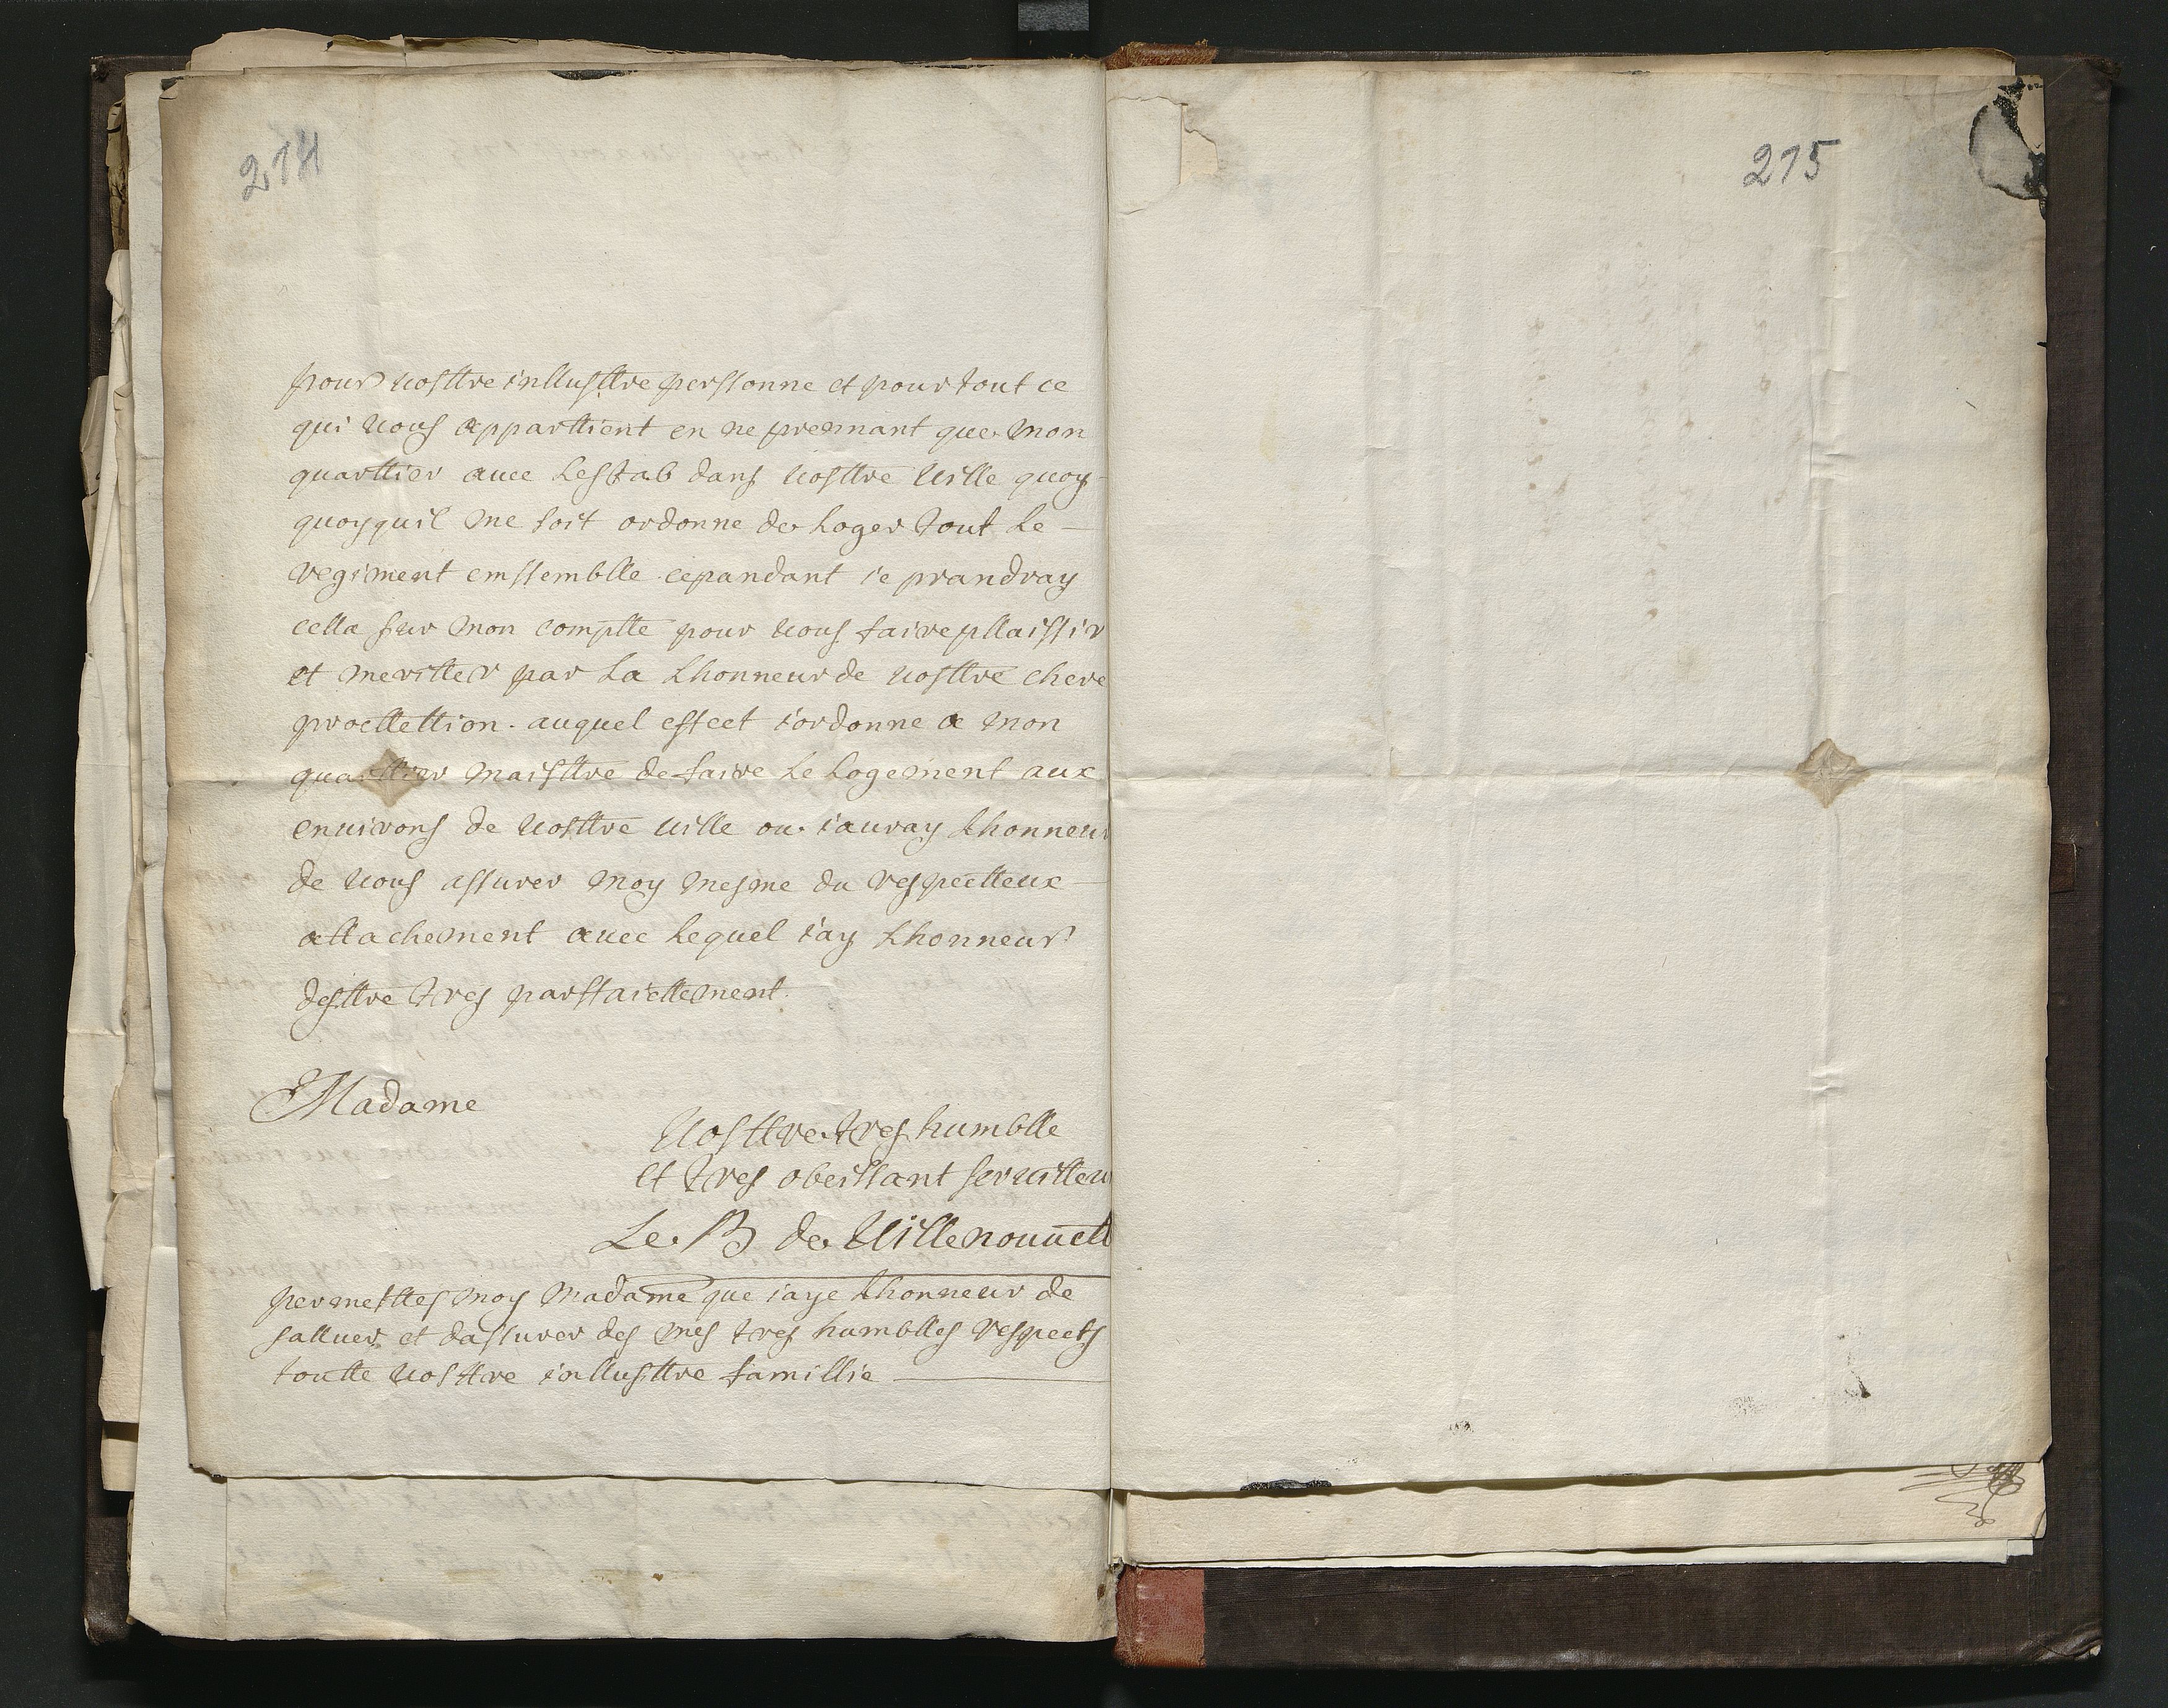 214
pour vosttre inllusttre perssonne et pour tout ce
qui vous apparttient en ne prennant que mon
quarttier avec Lestab dans vosttre ville quoy
quoyquil me soit ordonne de Loger tout Le
regiment emssemblle cepandant ie prandray
cella sur mon comptte pour vous faire pllaissir
et meritter par La Lhonneur de vosttre chere
procttettion. auquel effect iordonne a mon
quarttier maisttre de faire Le Logement aux
environs de vosttre ville ou iauray Lhonneur
de vous assurer moy mesme du respectteux
attachement avec Lequel iay Lhonneur
desttre tres parffaicttement.
Madame
Vosttre tres humblle
et tres obeissant servitteu
Le B de Villenouuell
permesttes moy madame que iaye Lhonneur de
salluer et dassurer des mes tres humblles respects
toutte vosttre inllusttre famillie
215